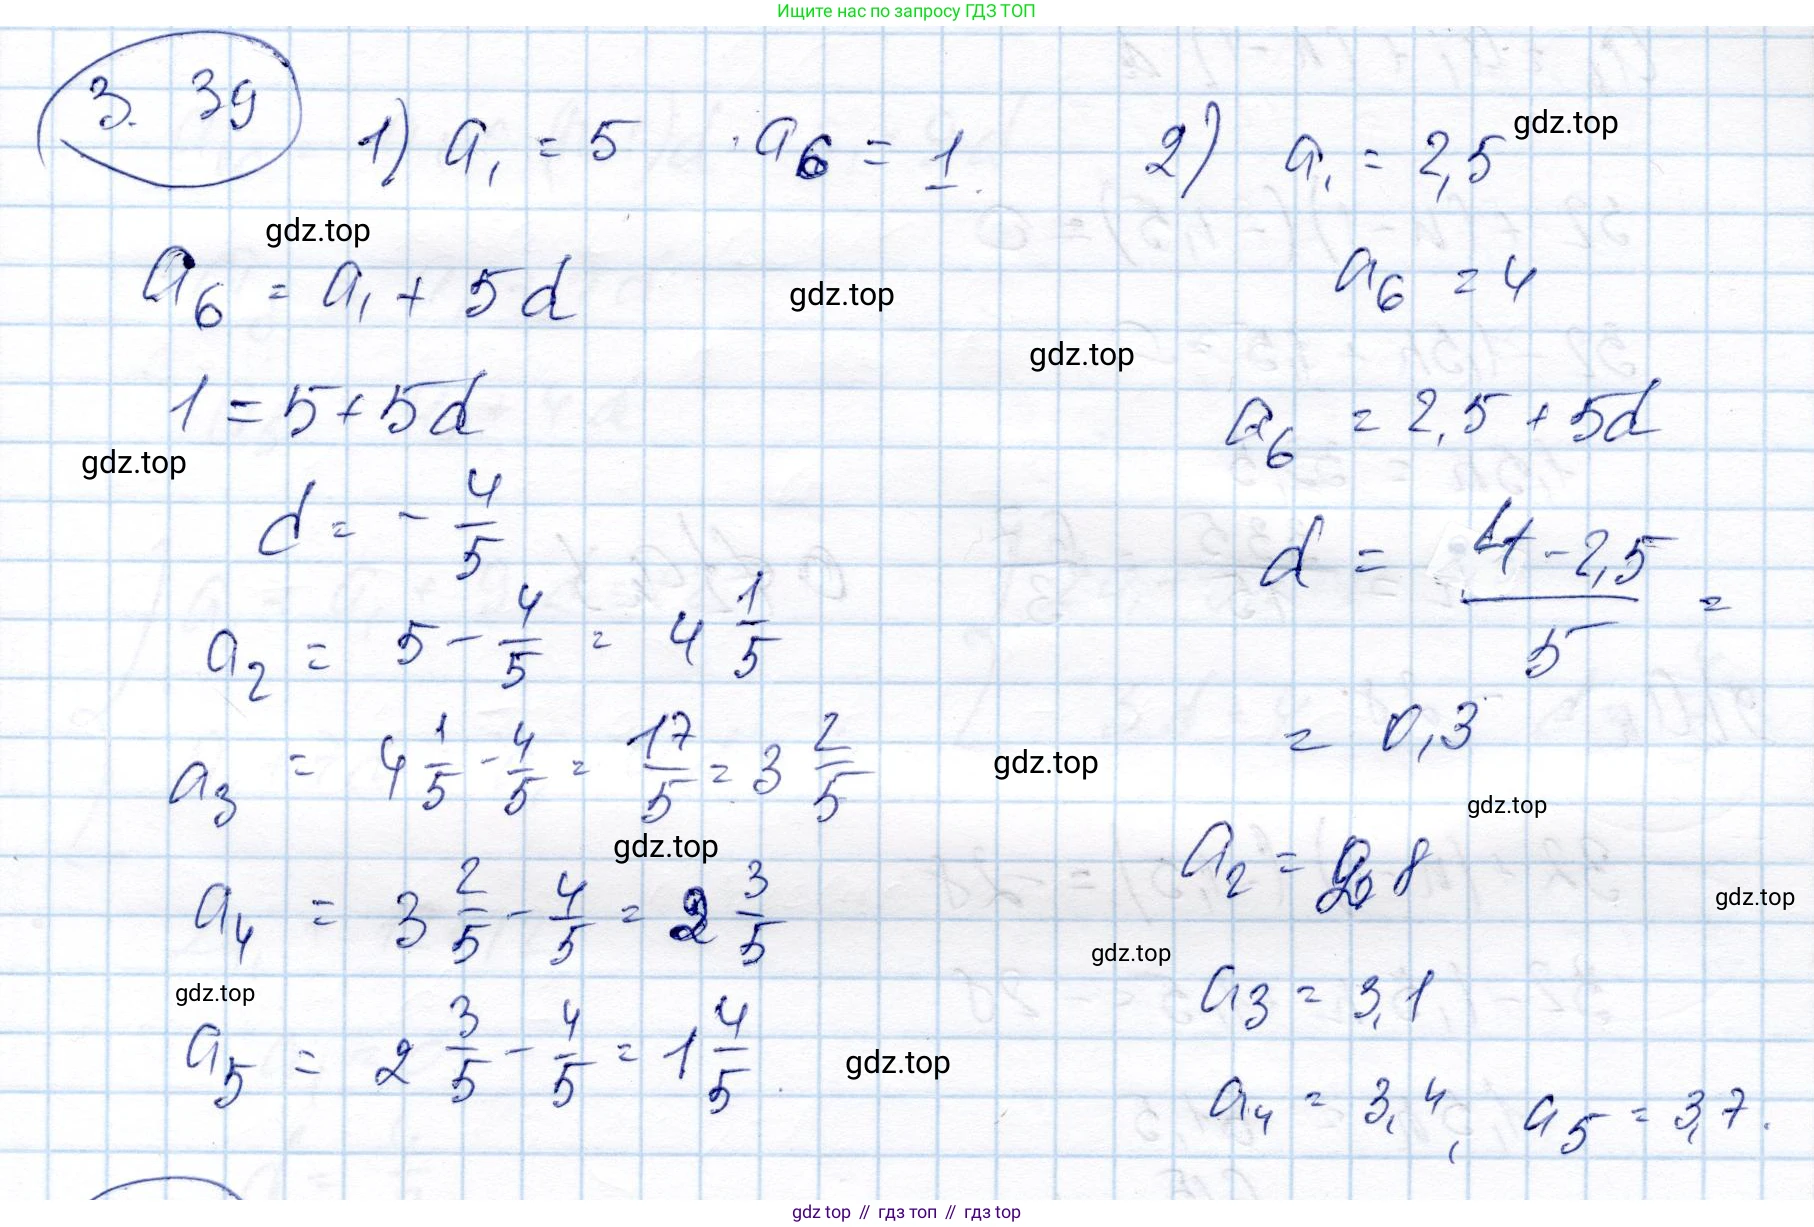 Ищите нас по запросу ГДЗ ТОП
3. 39
1) a₁ = 5 a₆ = 1
gdz.top
a₆ = a₁ + 5d
gdz.top
1 = 5 + 5d
gdz.top
d = - 4/5
a₂ = 5 - 4/5 = 4 1/5
a₃ = 4 1/5 - 4/5 = 17/5 = 3 2/5
gdz.top
gdz.top
a₄ = 3 2/5 - 4/5 = 2 3/5
gdz.top
a₅ = 2 3/5 - 4/5 = 1 4/5.
gdz.top
2) a₁ = 2,5
gdz.top
a₆ = 4
gdz.top
a₆ = 2,5 + 5d
d = (4 - 2,5)/5 =
= 0,3
gdz.top
a₂ = 2,8
gdz.top
gdz.top
a₃ = 3,1
a₄ = 3,4, a₅ = 3,7.
gdz top // гдз топ // gdz top